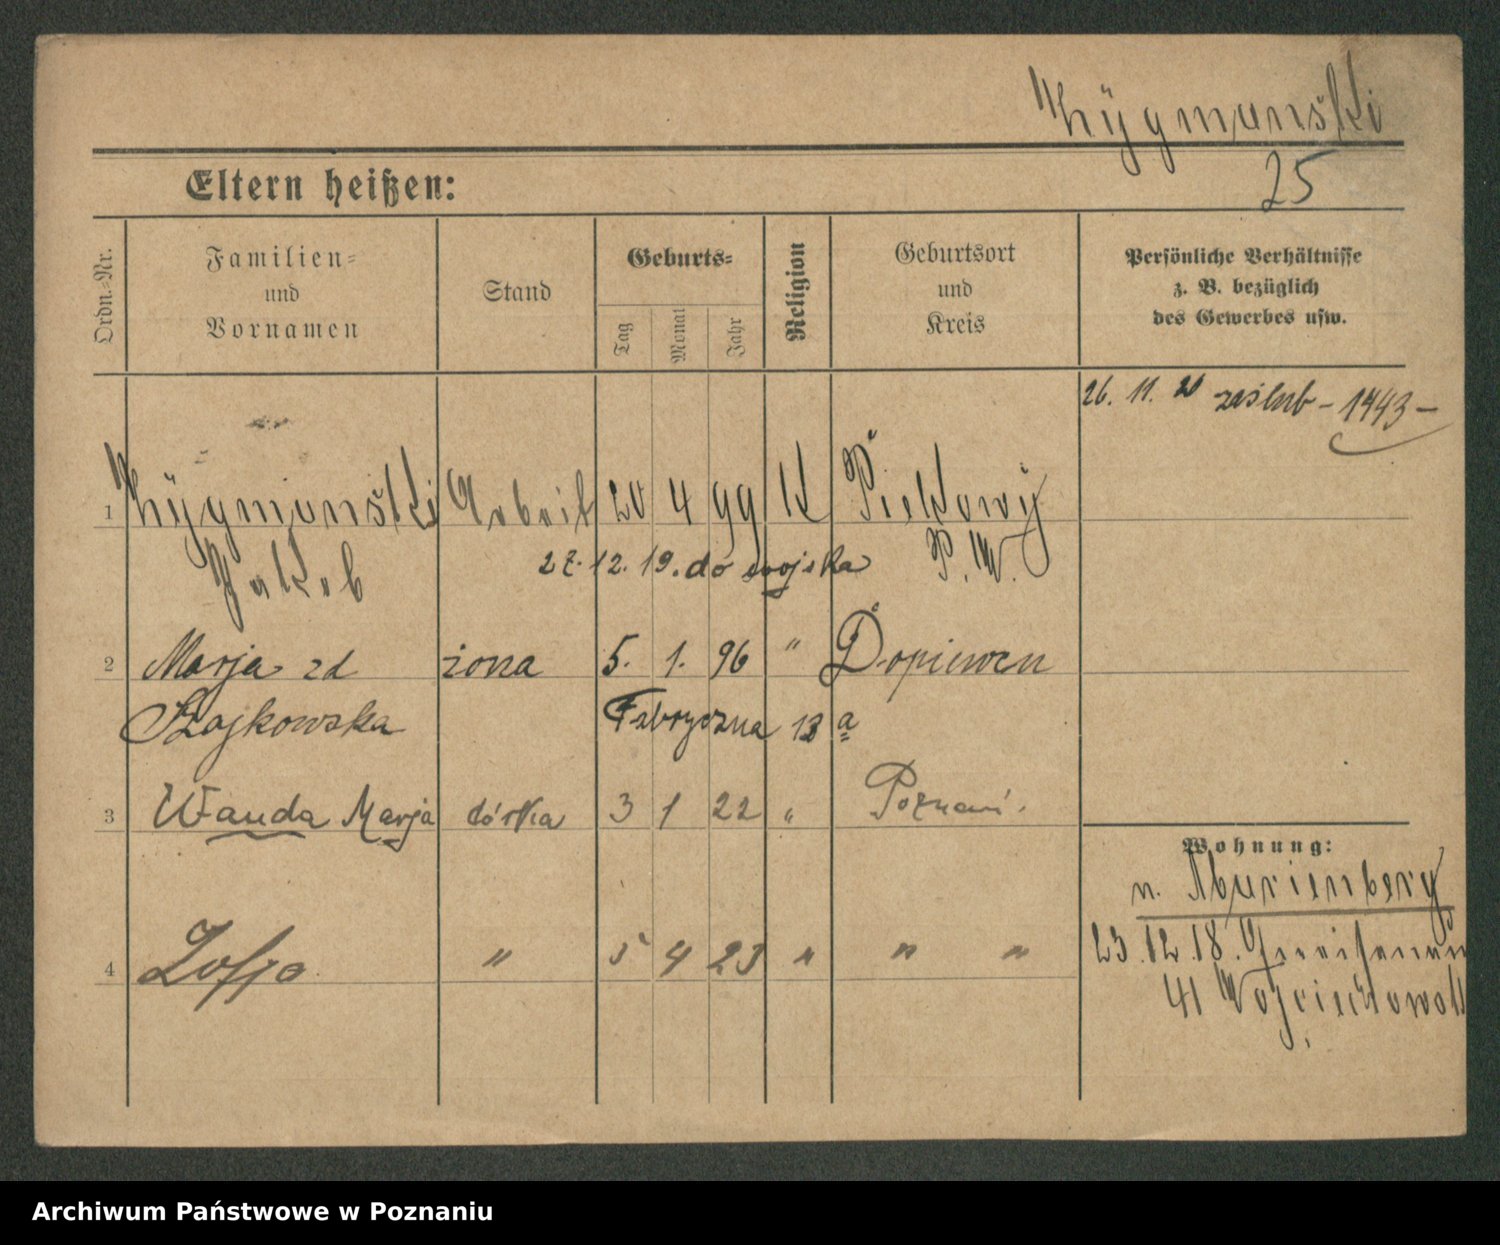 Zÿgmanski
25
Eltern heißen:
Ordn.=Nr.
Familien=
und
Vornamen
Stand
Geburts=
Tag
Monat
Jahr
Religion
Geburtsort
und
Kreis
Persönliche Verhältnisse
z. B. bezüglich
des Gewerbes usw.
26. 11. 20 zaślub – 1443 –
1 Zÿgmanski Arbeit 20 4 99 K Piekowÿ
Jakob P. W.
27. 12. 19. do wojska
2 Marja zd żona 5. 1. 96 " Dopiewen
Szajkowska Fabryczna 13 a
3 Wanda Marja córka 3 1 22 " Poznań.
Wohnung:
n. Marienberg
23.12.18.
41
4 Zofja " 5 4 23 " " "
Archiwum Państwowe w Poznaniu